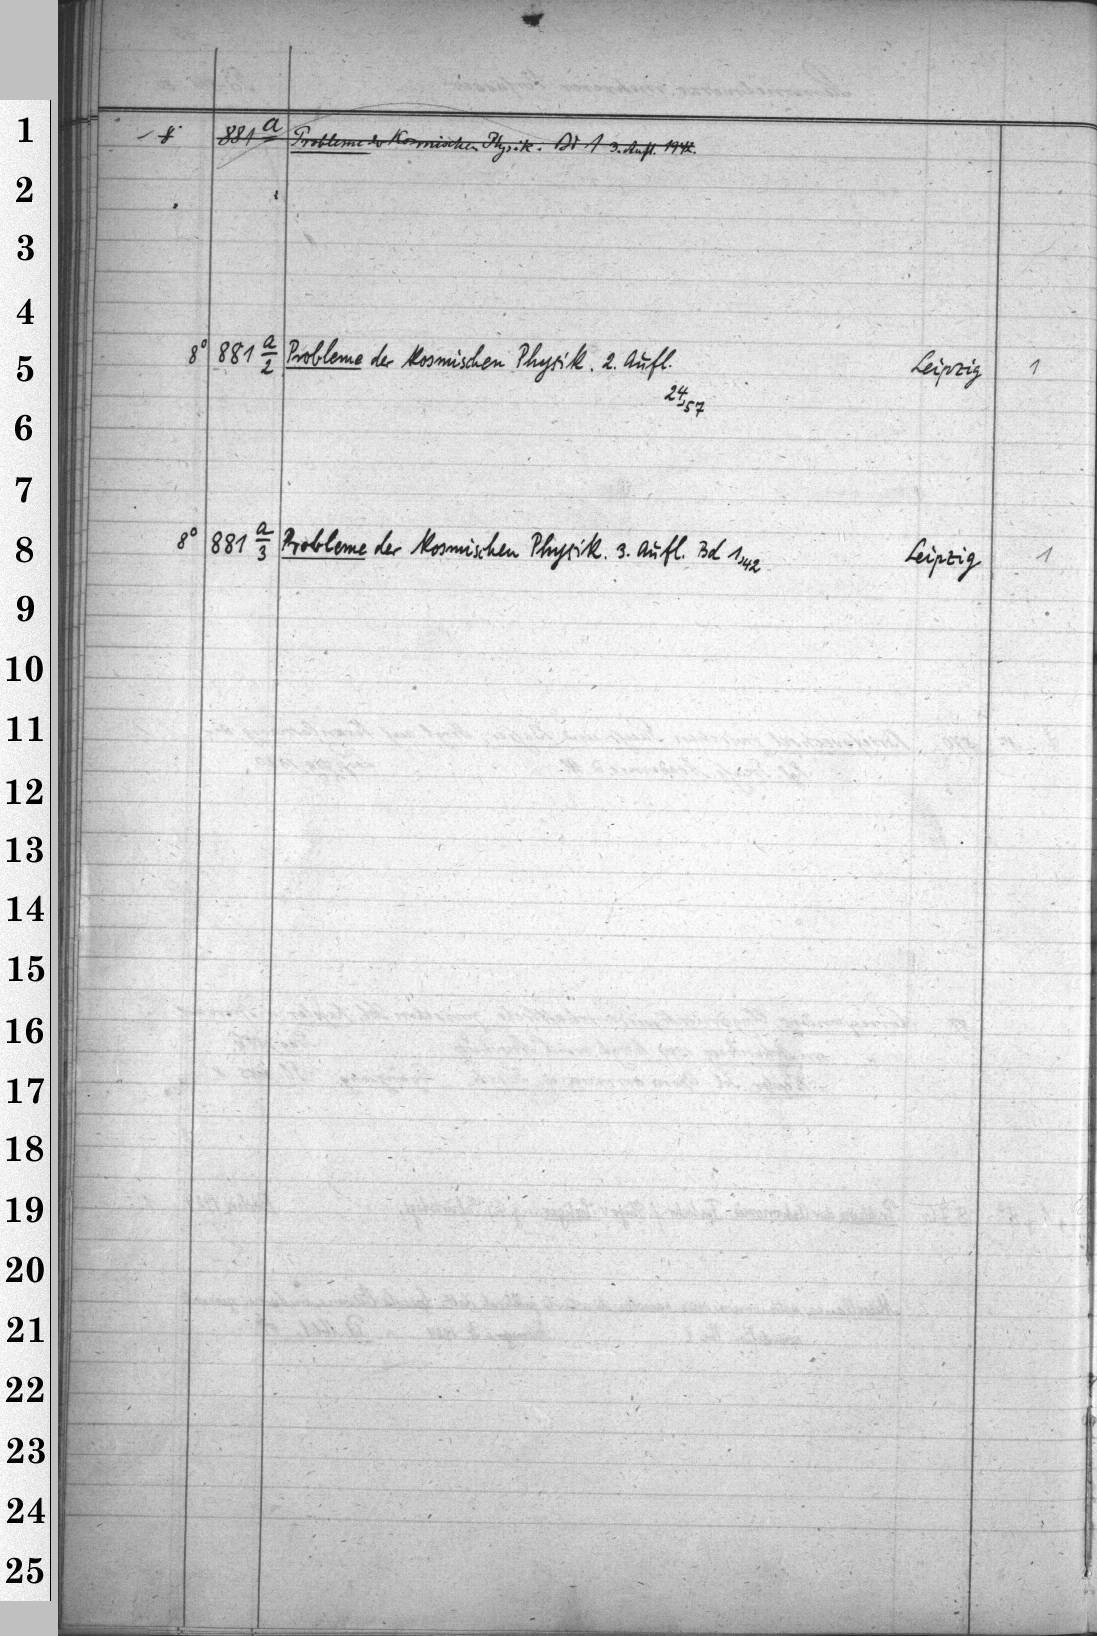 1
8° 881 a Probleme der Kosmischen Physik. Bd 1 3. Aufl. 1942.
2
3
4
5
8° 881 a/2 Probleme der Kosmischen Physik. 2. Aufl. Leipzig 1
24,57
6
7
8
8° 881 a/3 Probleme der Kosmischen Physik. 3. Aufl. Bd 1,42 Leipzig 1
9
10
11
12
13
14
15
16
17
18
19
20
21
22
23
24
25